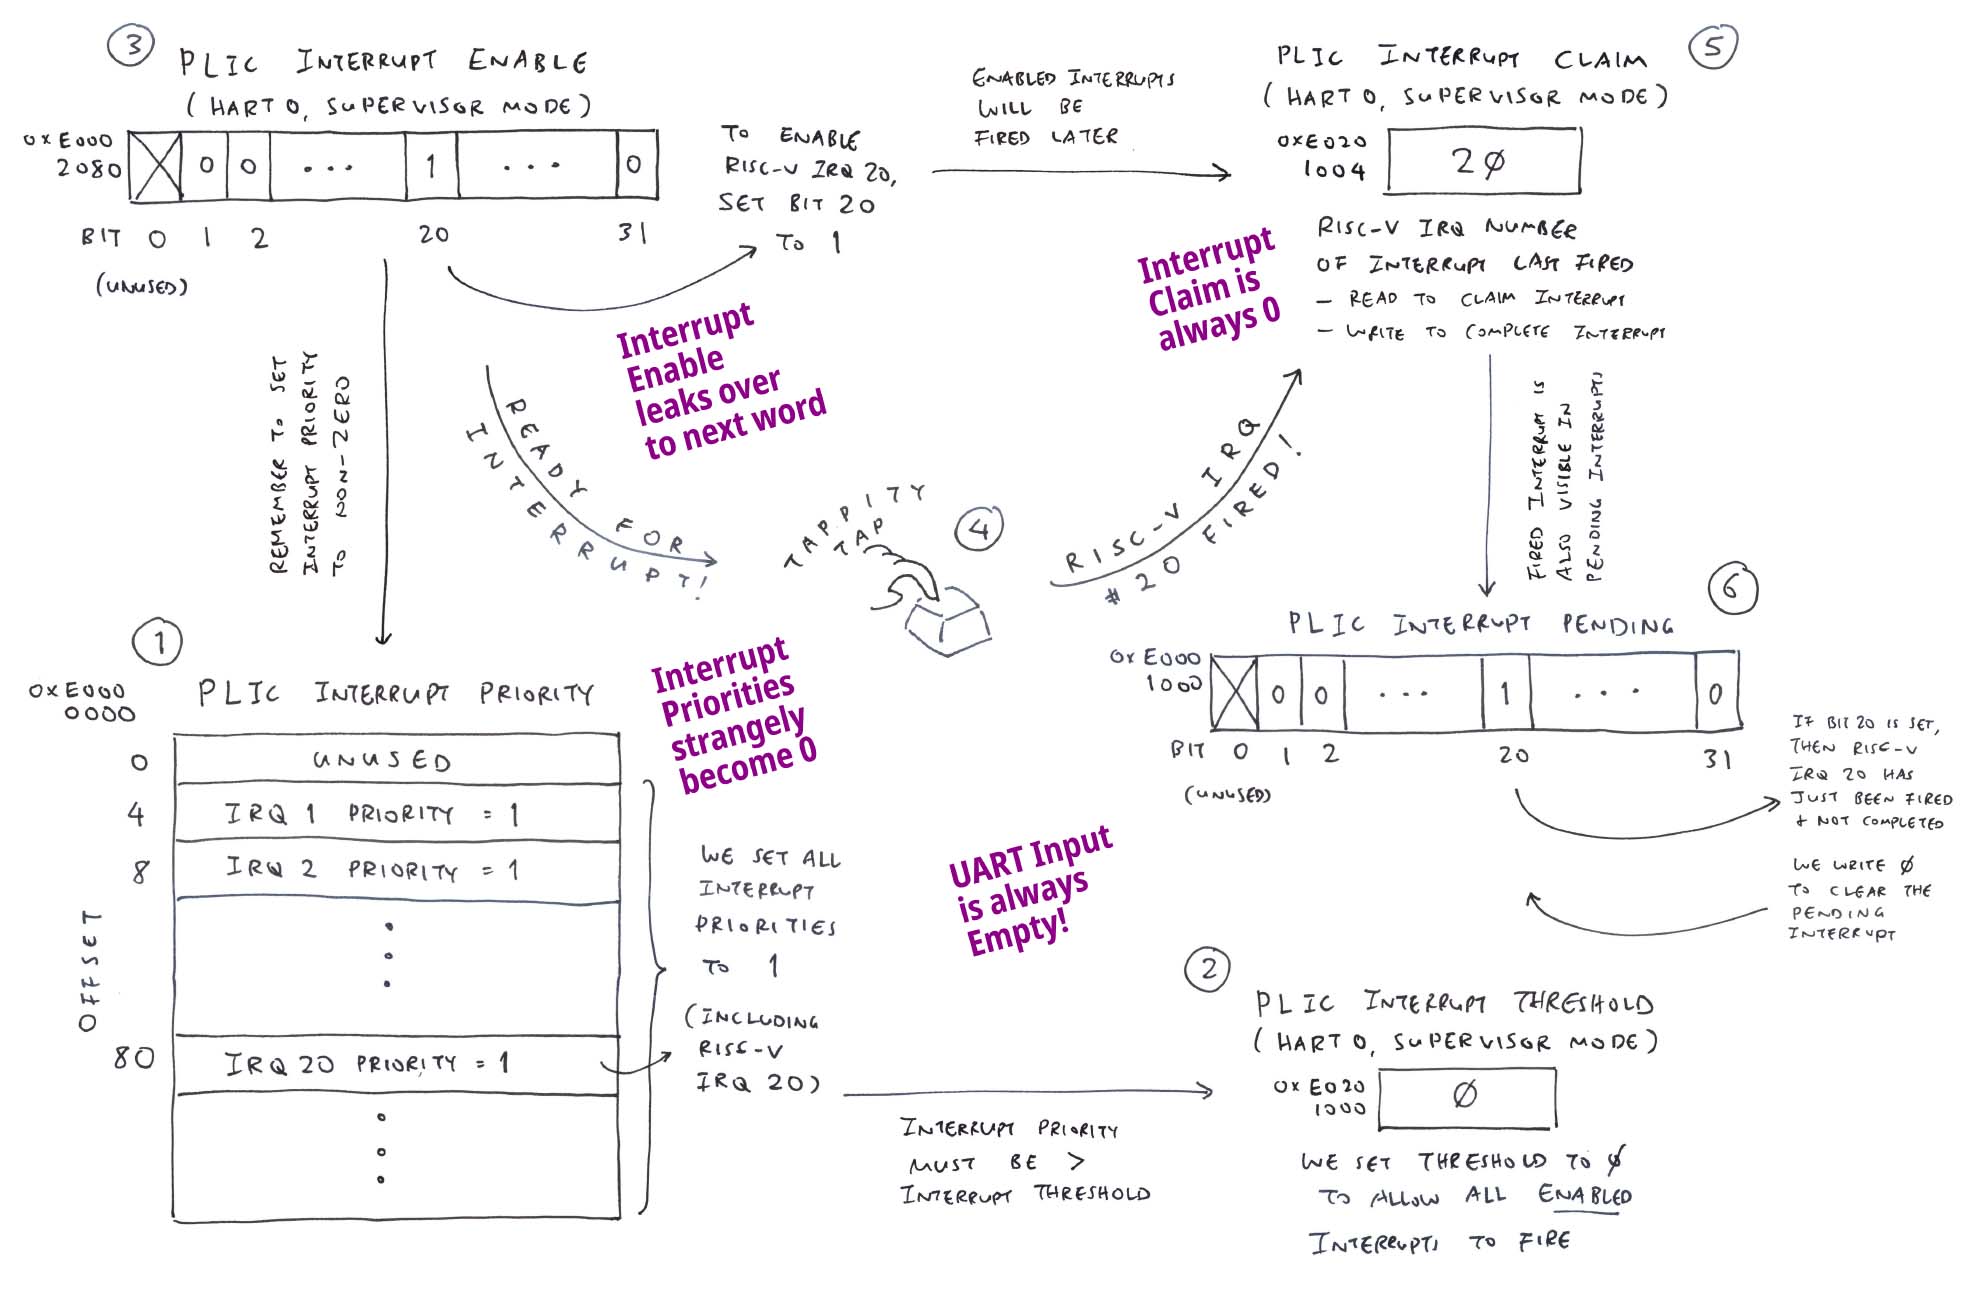 3
PLIC INTERRUPT ENABLE
(HART 0, SUPERVISOR MODE)
0xE000
2080
0 0 ... 1 ... 0
BIT 0 1 2 20 31
(UNUSED)
TO ENABLE
RISC-V IRQ 20,
SET BIT 20
TO 1
ENABLED INTERRUPTS
WILL BE
FIRED LATER
5
PLIC INTERRUPT CLAIM
(HART 0, SUPERVISOR MODE)
0xE020
1004
20
RISC-V IRQ NUMBER
OF INTERRUPT LAST FIRED
- READ TO CLAIM INTERRUPT
- WRITE TO COMPLETE INTERRUPT
Interrupt
Claim is
always 0
Interrupt
Enable
leaks over
to next word
REMEMBER TO SET
INTERRUPT PRIORITY
TO NON-ZERO
READY FOR
INTERRUPT!
TAPPITY
TAP
4
RISC-V IRQ
#20 FIRED!
FIRED INTERRUPT IS
ALSO VISIBLE IN
PENDING INTERRUPTS
1
0xE000
0000
PLIC INTERRUPT PRIORITY
0 UNUSED
4 IRQ 1 PRIORITY = 1
8 IRQ 2 PRIORITY = 1
OFFSET
80 IRQ 20 PRIORITY = 1
Interrupt
Priorities
strangely
become 0
WE SET ALL
INTERRUPT
PRIORITIES
TO 1
(INCLUDING
RISC-V
IRQ 20)
UART Input
is always
Empty!
INTERRUPT PRIORITY
MUST BE >
INTERRUPT THRESHOLD
6
PLIC INTERRUPT PENDING
0xE000
1000
0 0 ... 1 ... 0
BIT 0 1 2 20 31
(UNUSED)
IF BIT 20 IS SET,
THEN RISC-V
IRQ 20 HAS
JUST BEEN FIRED
+ NOT COMPLETED
WE WRITE 0
TO CLEAR THE
PENDING
INTERRUPT
2
PLIC INTERRUPT THRESHOLD
(HART 0, SUPERVISOR MODE)
0xE020
1000
0
WE SET THRESHOLD TO 0
TO ALLOW ALL ENABLED
INTERRUPTS TO FIRE